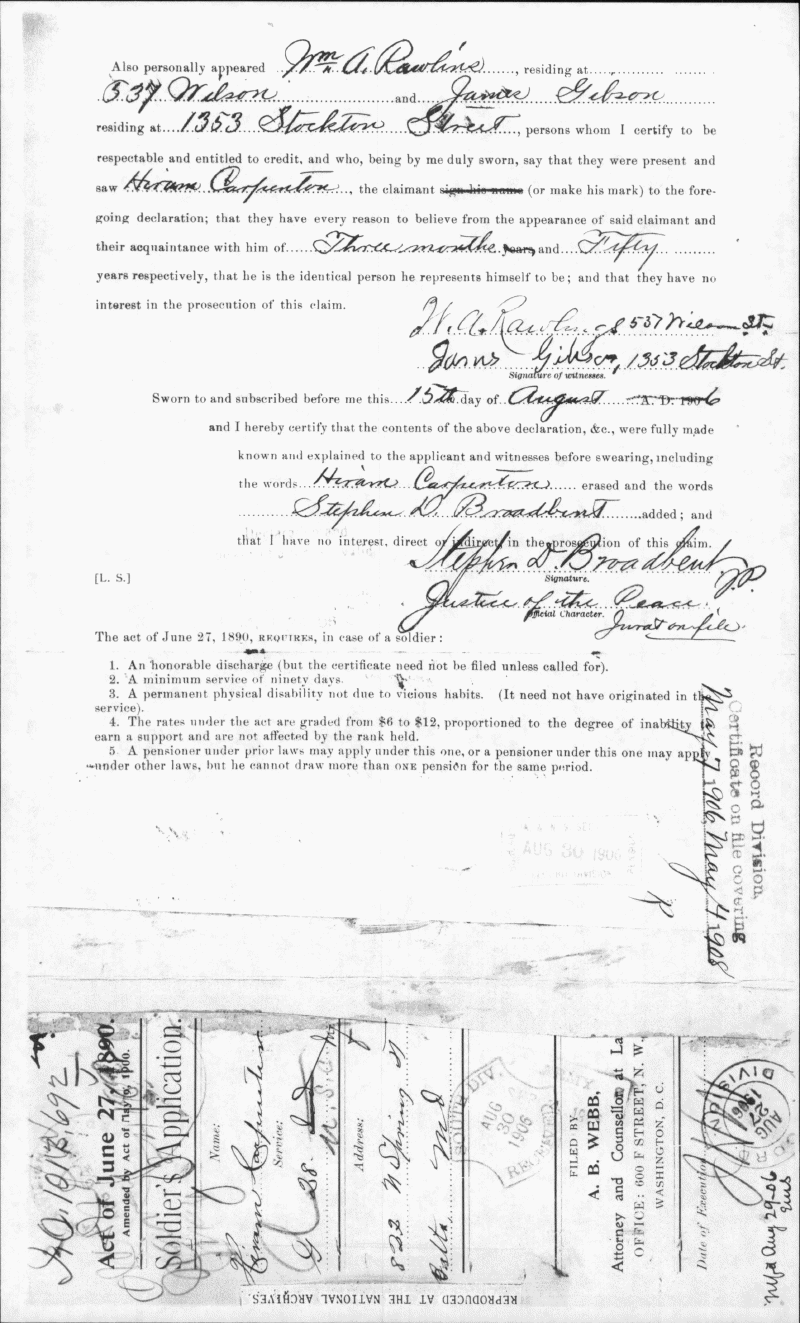 Also personally appeared Wm A. Rawlins, residing at
537 Wilson and James Gibson
residing at 1353 Stockton Street, persons whom I certify to be
respectable and entitled to credit, and who, being by me duly sworn, say that they were present and
saw Hiram Carpenton, the claimant sign his name (or make his mark) to the fore-
going declaration; that they have every reason to believe from the appearance of said claimant and
their acquaintance with him of Three months years and Fifty
years respectively, that he is the identical person he represents himself to be; and that they have no
interest in the prosecution of this claim.
W. A. Rawlings 537 Wilson St.
James Gibson, 1353 Stockton St.
Signature of witnesses.
Sworn to and subscribed before me this 15th day of August A. D. 1906
and I hereby certify that the contents of the above declaration, &c., were fully made
known and explained to the applicant and witnesses before swearing, including
the words Hiram Carpenton erased and the words
Stephen D. Broadbent added; and
that I have no interest, direct or indirect, in the prosecution of this claim.
Stephen D. Broadbent J.P.
[L. S.]
Signature.
Justice of the Peace.
Official Character.
Jurat on file.
The act of June 27, 1890, REQUIRES, in case of a soldier:
1. An honorable discharge (but the certificate need not be filed unless called for).
2. A minimum service of ninety days.
3. A permanent physical disability not due to vicious habits. (It need not have originated in the
service).
4. The rates under the act are graded from $6 to $12, proportioned to the degree of inability
earn a support and are not affected by the rank held.
5 A pensioner under prior laws may apply under this one, or a pensioner under this one may apply
under other laws, but he cannot draw more than ONE pension for the same period.
Record Division,
Certificate on file covering
May 7 1906, May 4 1908
AUG 30 1906
Act of June 27, 1890.
Amended by Act of May 9, 1900.
Soldier's Application.
Name:
Hiram Carpenton
Service:
G 38
Address:
822 N Spring St
Balto. Md
SOUTH. DIV.
AUG
30
1906
FILED BY
A. B. WEBB,
Attorney and Counsellor at La
OFFICE: 600 F STREET, N. W.,
WASHINGTON, D. C.
Date of Execution
AUG
27
1906
DIVISION
Aug 29-06
REPRODUCED AT THE NATIONAL ARCHIVES.